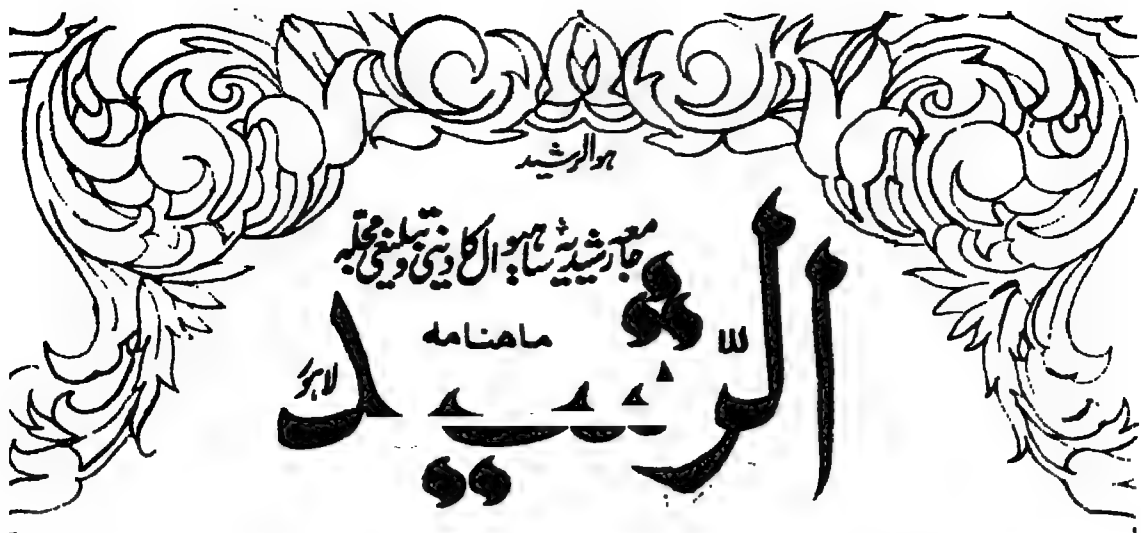 ہوالرشید
جامعہ رشیدیہ ساہیوال کا دینی و تبلیغی مجلہ
ماهنامه
الرشید
لاہور